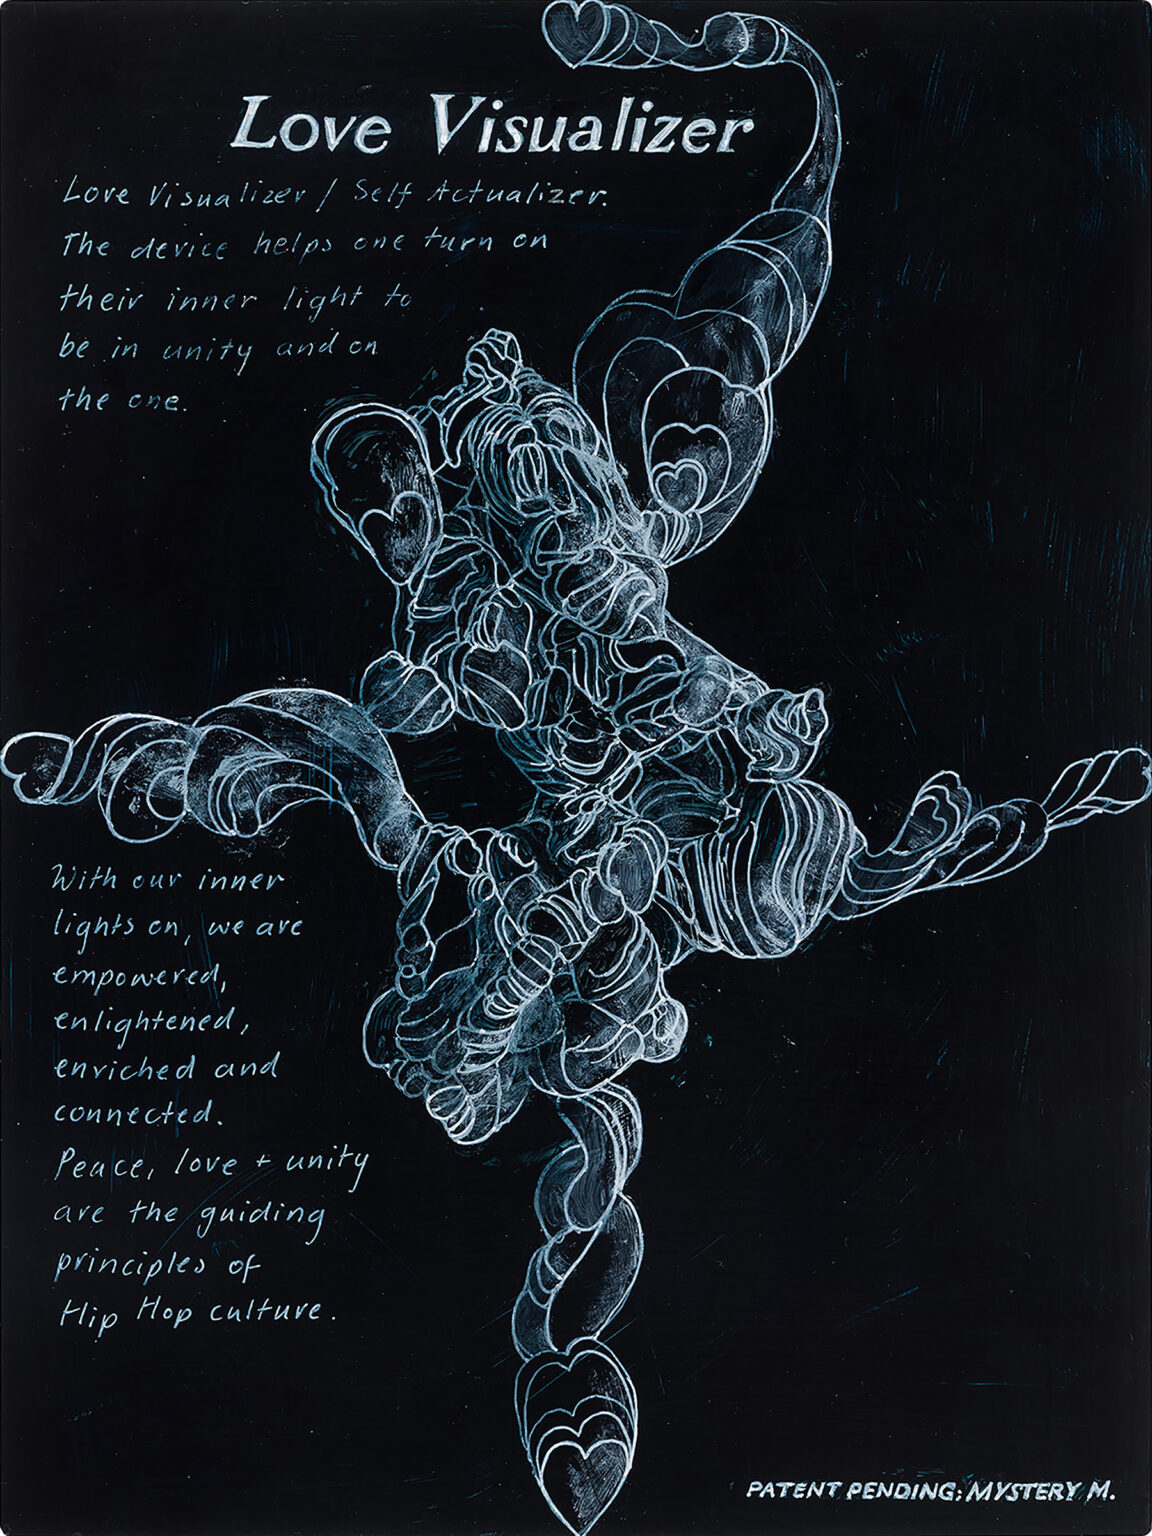 Love Visualizer
Love Visualizer / Self Actualizer.
The device helps one turn on
their inner light to
be in unity and on
the one.
With our inner
lights on, we are
empowered,
enlightened,
enriched and
connected.
Peace, love + unity
are the guiding
principles of
Hip Hop culture.
PATENT PENDING: MYSTERY M.